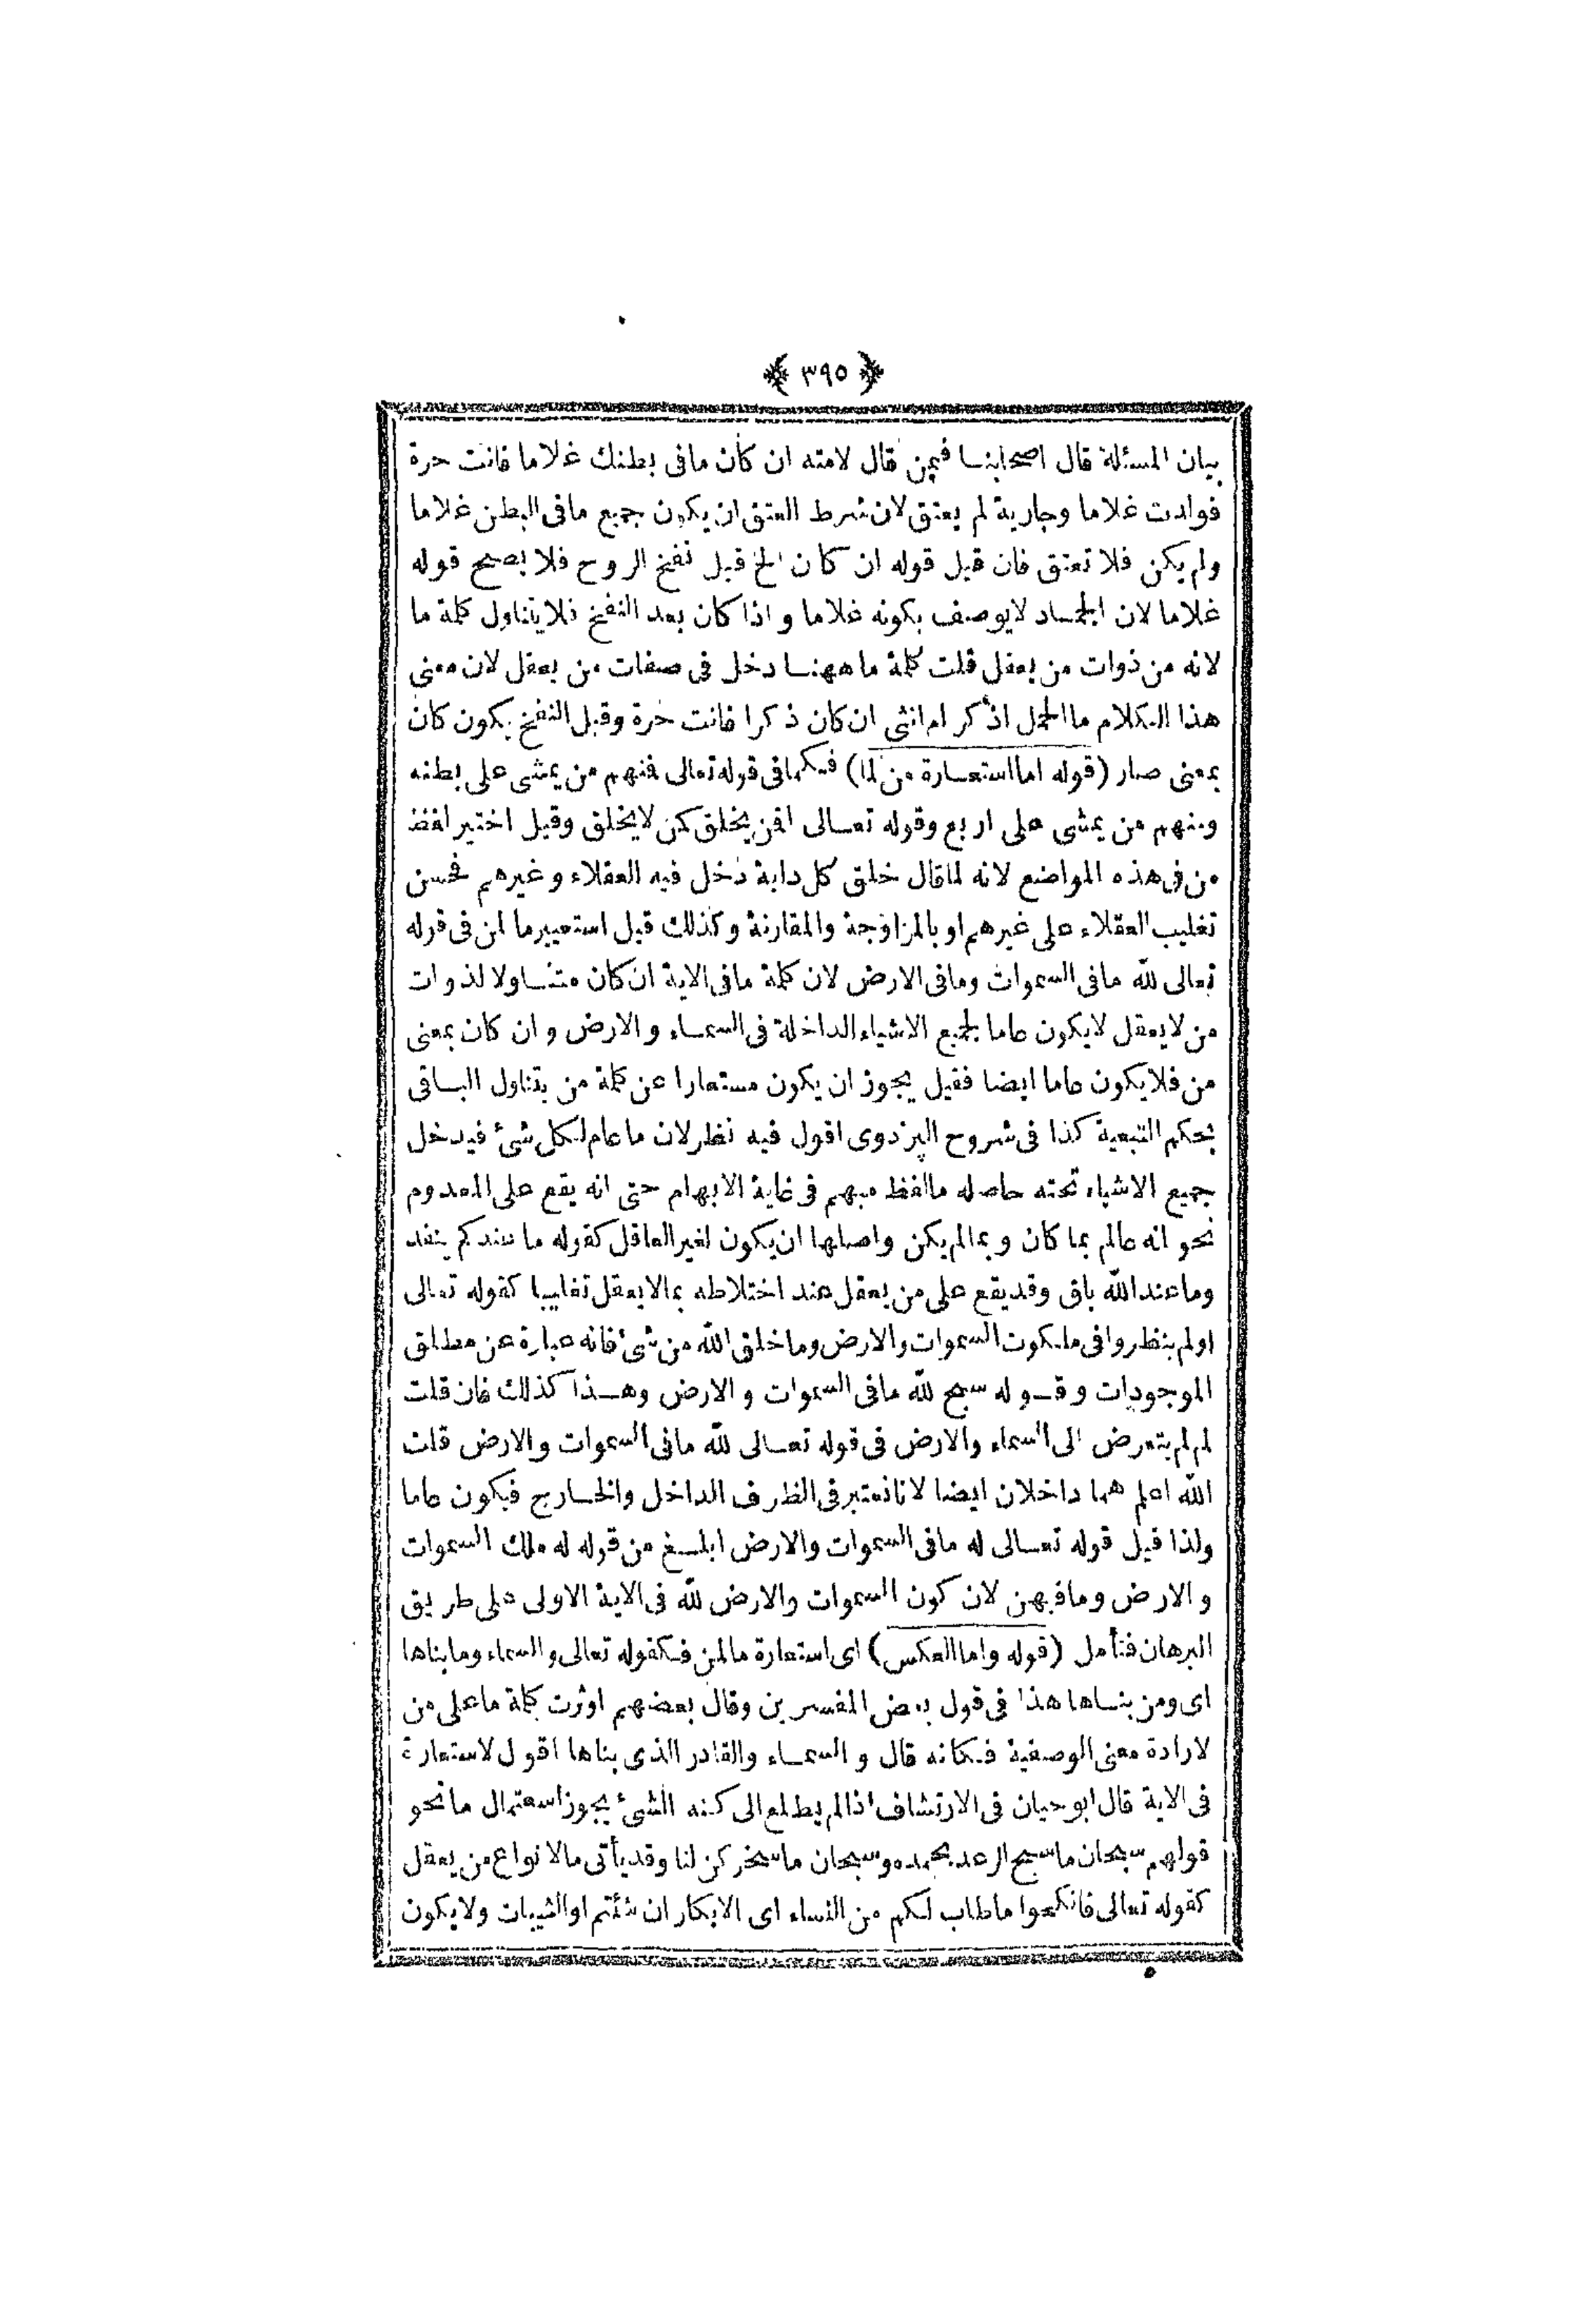 ﴿ ٣٩٥ ﴾
بيان المسئلة قال اصحابنا فيمن قال لامته ان كان مافى بطنك غلاما فانت حرة
فولدت غلاما وجارية لم يعتق لان شرط العتق ان يكون جميع مافى البطن غلاما
ولم يكن فلا تعتق فان قيل قوله ان كان الخ قبل نفخ الروح فلا يصح قوله
غلاما لان الجماد لايوصف بكونه غلاما و اذا كان بعد النفخ فلا يتناول كلمة ما
لانه من ذوات من يعقل قلت كلمة ما ههنا دخل فى صفات من يعقل لان معنى
هذا الكلام ما الحمل اذكر ام انثى ان كان ذكرا فانت حرة وقبل النفخ يكون كان
بمعنى صار (قوله اما استعارة من لما) فكما فى قوله تعالى فمنهم من يمشى على بطنه
ومنهم من يمشى على اربع وقوله تعالى افمن يخلق كمن لايخلق وقيل اختير لفظ
من فى هذه المواضع لانه لماقال خلق كل دابة دخل فيه العقلاء وغيرهم فحسن
تغليب العقلاء على غيرهم او بالمزاوجة والمقارنة وكذلك قيل استعير ما لمن فى قوله
تعالى لله مافى السموات ومافى الارض لان كلمة مافى الاية ان كان متناولا لذوات
من لايعقل لايكون عاما لجميع الاشياء الداخلة فى السماء والارض و ان كان بمعنى
من فلايكون عاما ايضا فقيل يجوز ان يكون مستعارا عن كلمة من يتناول الباقى
بحكم التبعية كذا فى شروح البزدوى اقول فيه نظر لان ما عام لكل شئ فيدخل
جميع الاشياء تحته حاصله مالفظ مبهم فى غاية الابهام حتى انه يقع على المعدوم
نحو انه عالم بما كان و بمالم يكن واصلها ان يكون لغير العاقل كقوله ما عندكم ينفد
وما عند الله باق وقد يقع على من يعقل عند اختلاطه بمالايعقل تغليبا كقوله تعالى
اولم ينظروا فى ملكوت السموات والارض وما خلق الله من شئ فانه عبارة عن مطلق
الموجودات وقوله سبح لله مافى السموات و الارض وهذا كذلك فان قلت
لم لم يتعرض الى السماء والارض فى قوله تعالى لله مافى السموات والارض قلت
الله اعلم هما داخلان ايضا لانا نعتبر فى الظرف الداخل والخارج فيكون عاما
ولذا قيل قوله تعالى له مافى السموات والارض ابلغ من قوله له ملك السموات
والارض ومافيهن لان كون السموات والارض لله فى الاية الاولى على طريق
البرهان فتأمل (قوله واما العكس) اى استعارة ما لمن فكقوله تعالى والسماء ومابناها
اى ومن بناها هذا فى قول بعض المفسرين وقال بعضهم اوثرت كلمة ما على من
لارادة معنى الوصفية فكانه قال و السماء والقادر الذى بناها اقول لاستعارة
فى الاية قال ابو حيان فى الارتشاف اذالم يطلع الى كنه الشئ يجوز استعمال ما نحو
قولهم سبحان ما سبح الرعد بحمده وسبحان ما سخركن لنا وقد يأتى ما لانواع من يعقل
كقوله تعالى فانكحوا ماطاب لكم من النساء اى الابكار ان شئتم او الثيبات ولايكون